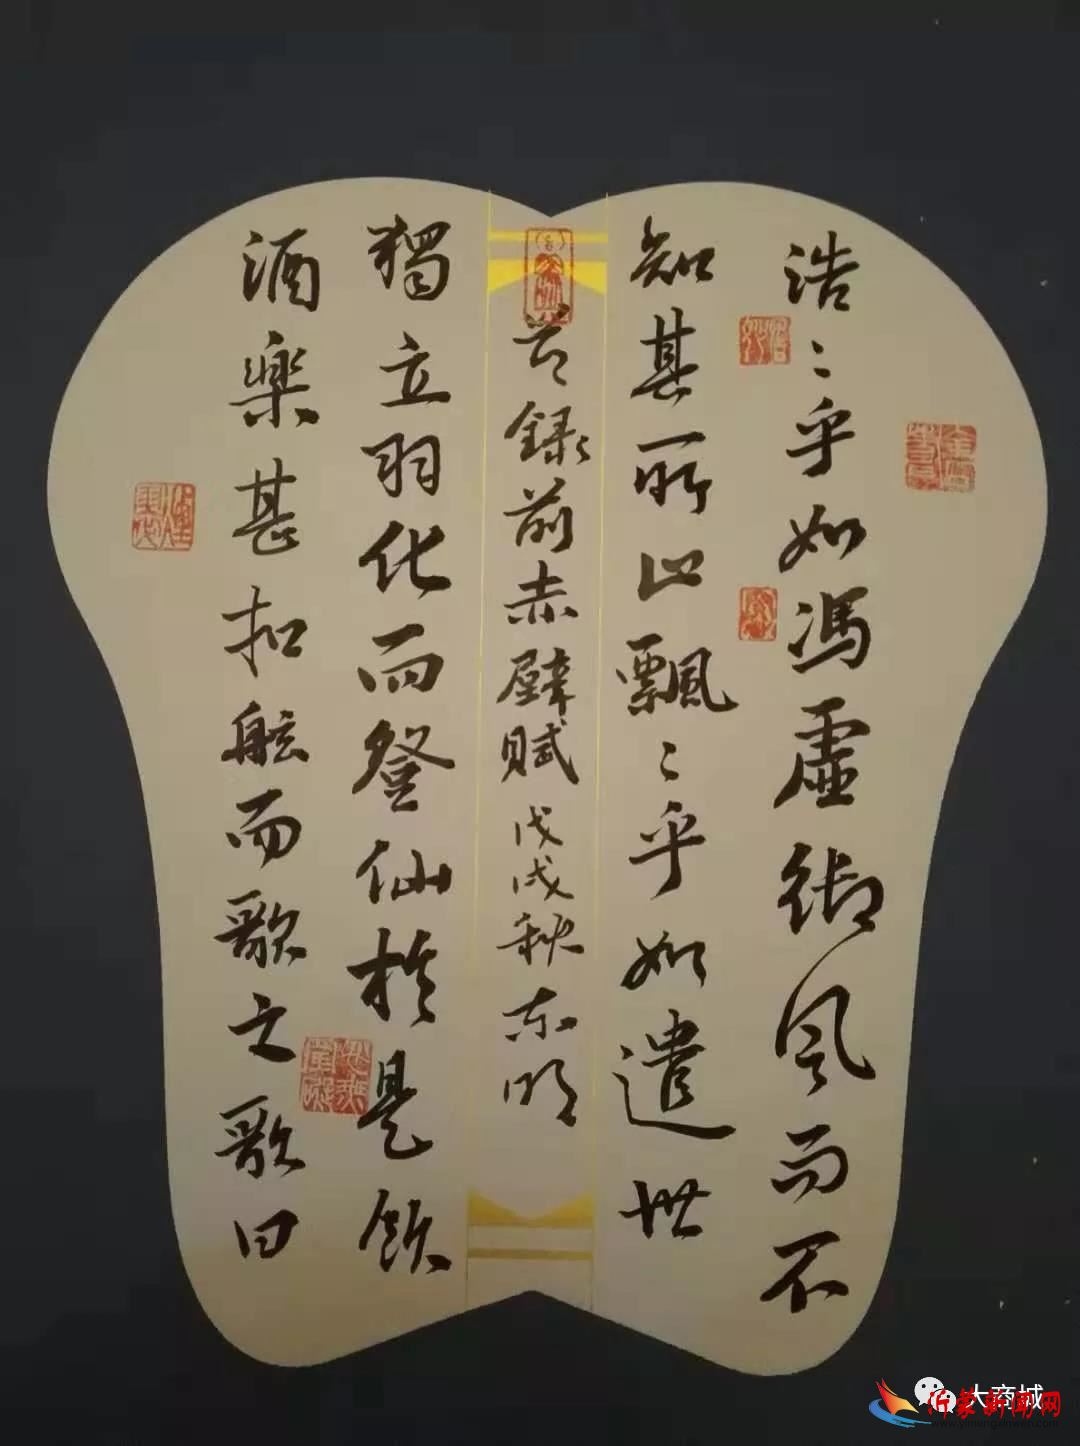 浩〻乎如馮虛御風而不
知其所止飄〻乎如遺世
節錄前赤壁賦戊戌秋东明
獨立羽化而登仙於是飲
酒樂甚扣舷而歌之歌曰
大商城
沂蒙新闻网
www.yimengxinwen.com